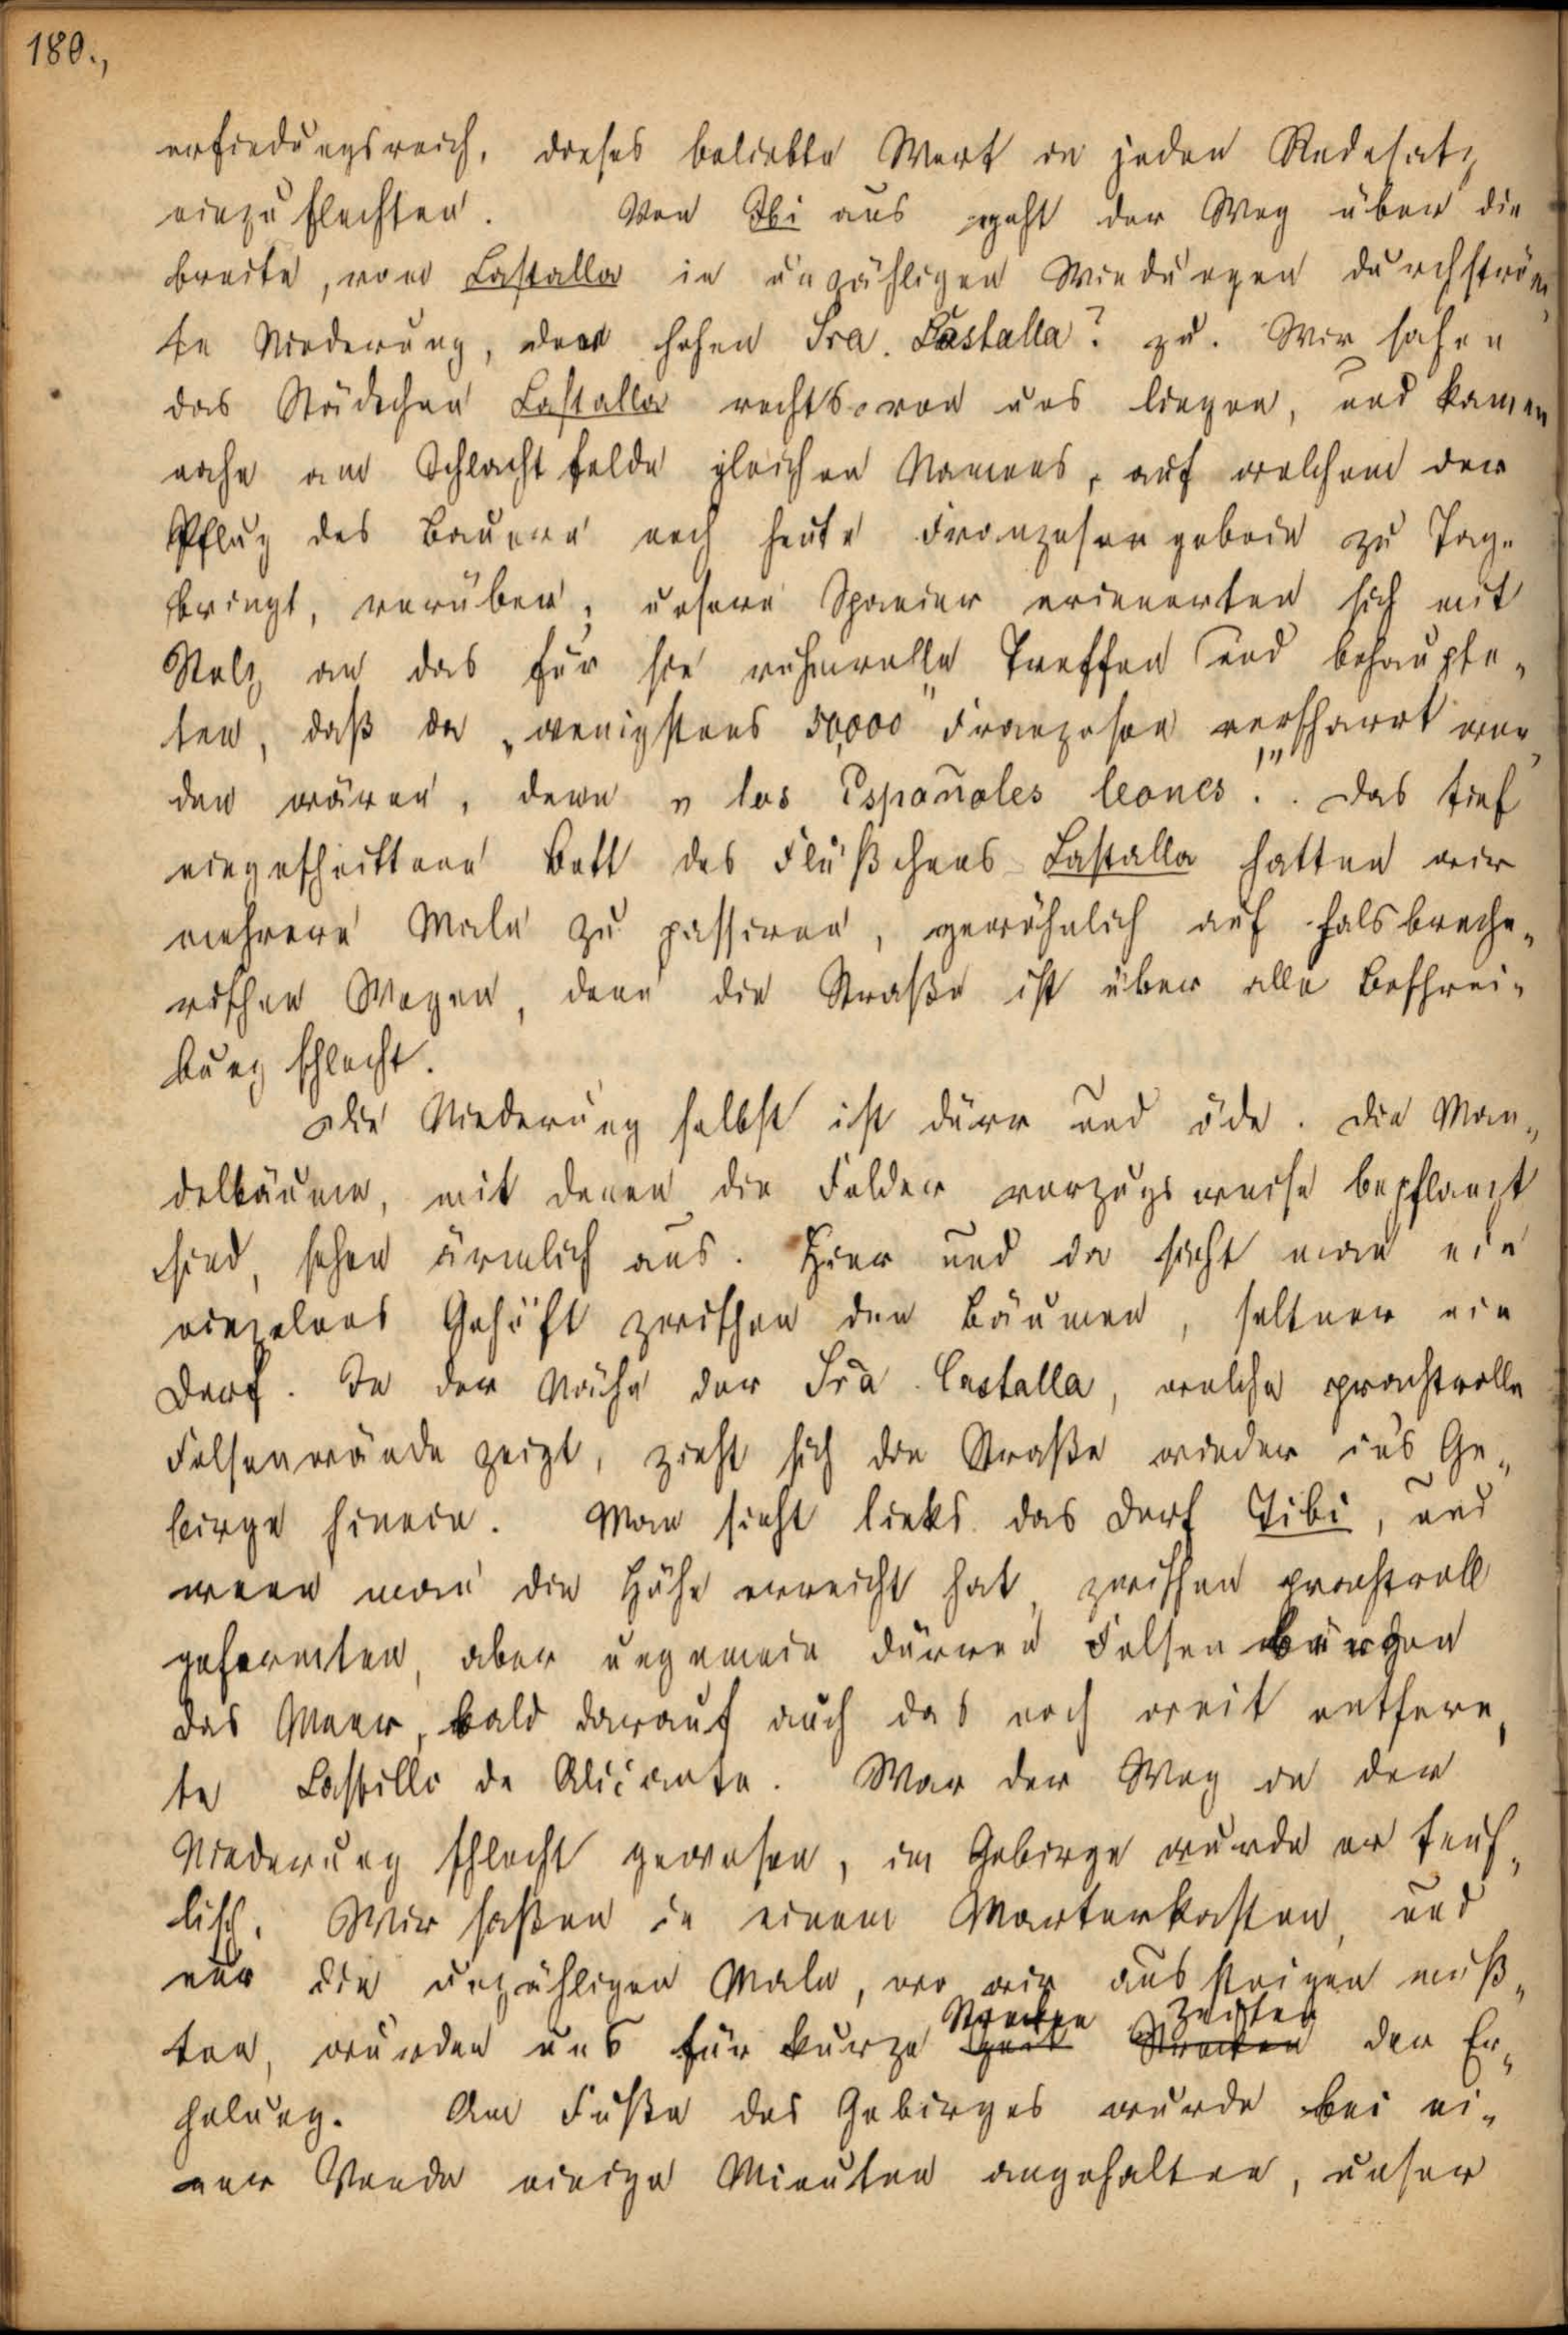 180.,
erfindungsreich, dieses beliebte Wort in jeden Redesatz
einzuflechten. Von Ibi aus geht der Weg über die
breite, vom Castalla in unzähligen Windungen durchström„
te Niederung, der hohen Sra. Castalla? zu. Wir sahen
das Städtchen Castalla rechts von uns liegen, und kamen
nahe am Schlachtfelde gleichen Namens, auf welchem der
Pflug des Bauern noch heute Franzosengebein zu Tage
bringt, vorüber; unsere Spanier erinnerten sich mit
Stolz an das für sie ruhmvolle Treffen und behaupte„
ten, daß da „wenigstens 50,000" Franzosen verscharrt wor„
den wären, denn „los Españoles leones!". Das tief
eingeschnittene Bett des Flüßchens Castalla hatten wir
mehrere Male zu passiren, gewöhnlich auf halsbreche„
rischen Wegen, denn die Straße ist über alle Beschrei„
bung schlecht.
Die Niederung selbst ist dürr und öde. Die Man„
delbäume, mit denen die Felder vorzugsweise bepflanzt
sind, sehen ärmlich aus. Hier und da sieht man ein
einzelnes Gehöft zwischen den Bäumen, seltner ein
Dorf. In der Nähe der Sra. Castalla, welche prachtvolle
Felsenwände zeigt, zieht sich die Straße wieder in's Ge„
birge hinein. Man sieht links das Dorf Tibi, und
wenn man die Höhe erreicht hat, zwischen prachtvoll
geformten, aber ungemein dürren Felsen
das Meer, bald darauf auch das noch weit entfern„
te Castillo de Alicante. War der Weg in der
Niederung schlecht gewesen, im Gebirge wurde er teuf„
lisch. Wir saßen in einem Marterkasten, und
nur die unzähligen Male, wo wir aussteigen muß„
ten, wurden uns für kurze Strecken Zeiten der Er„
holung. Am Fuße des Gebirges wurde bei ei„
ner Venda einige Minuten angehalten, unser